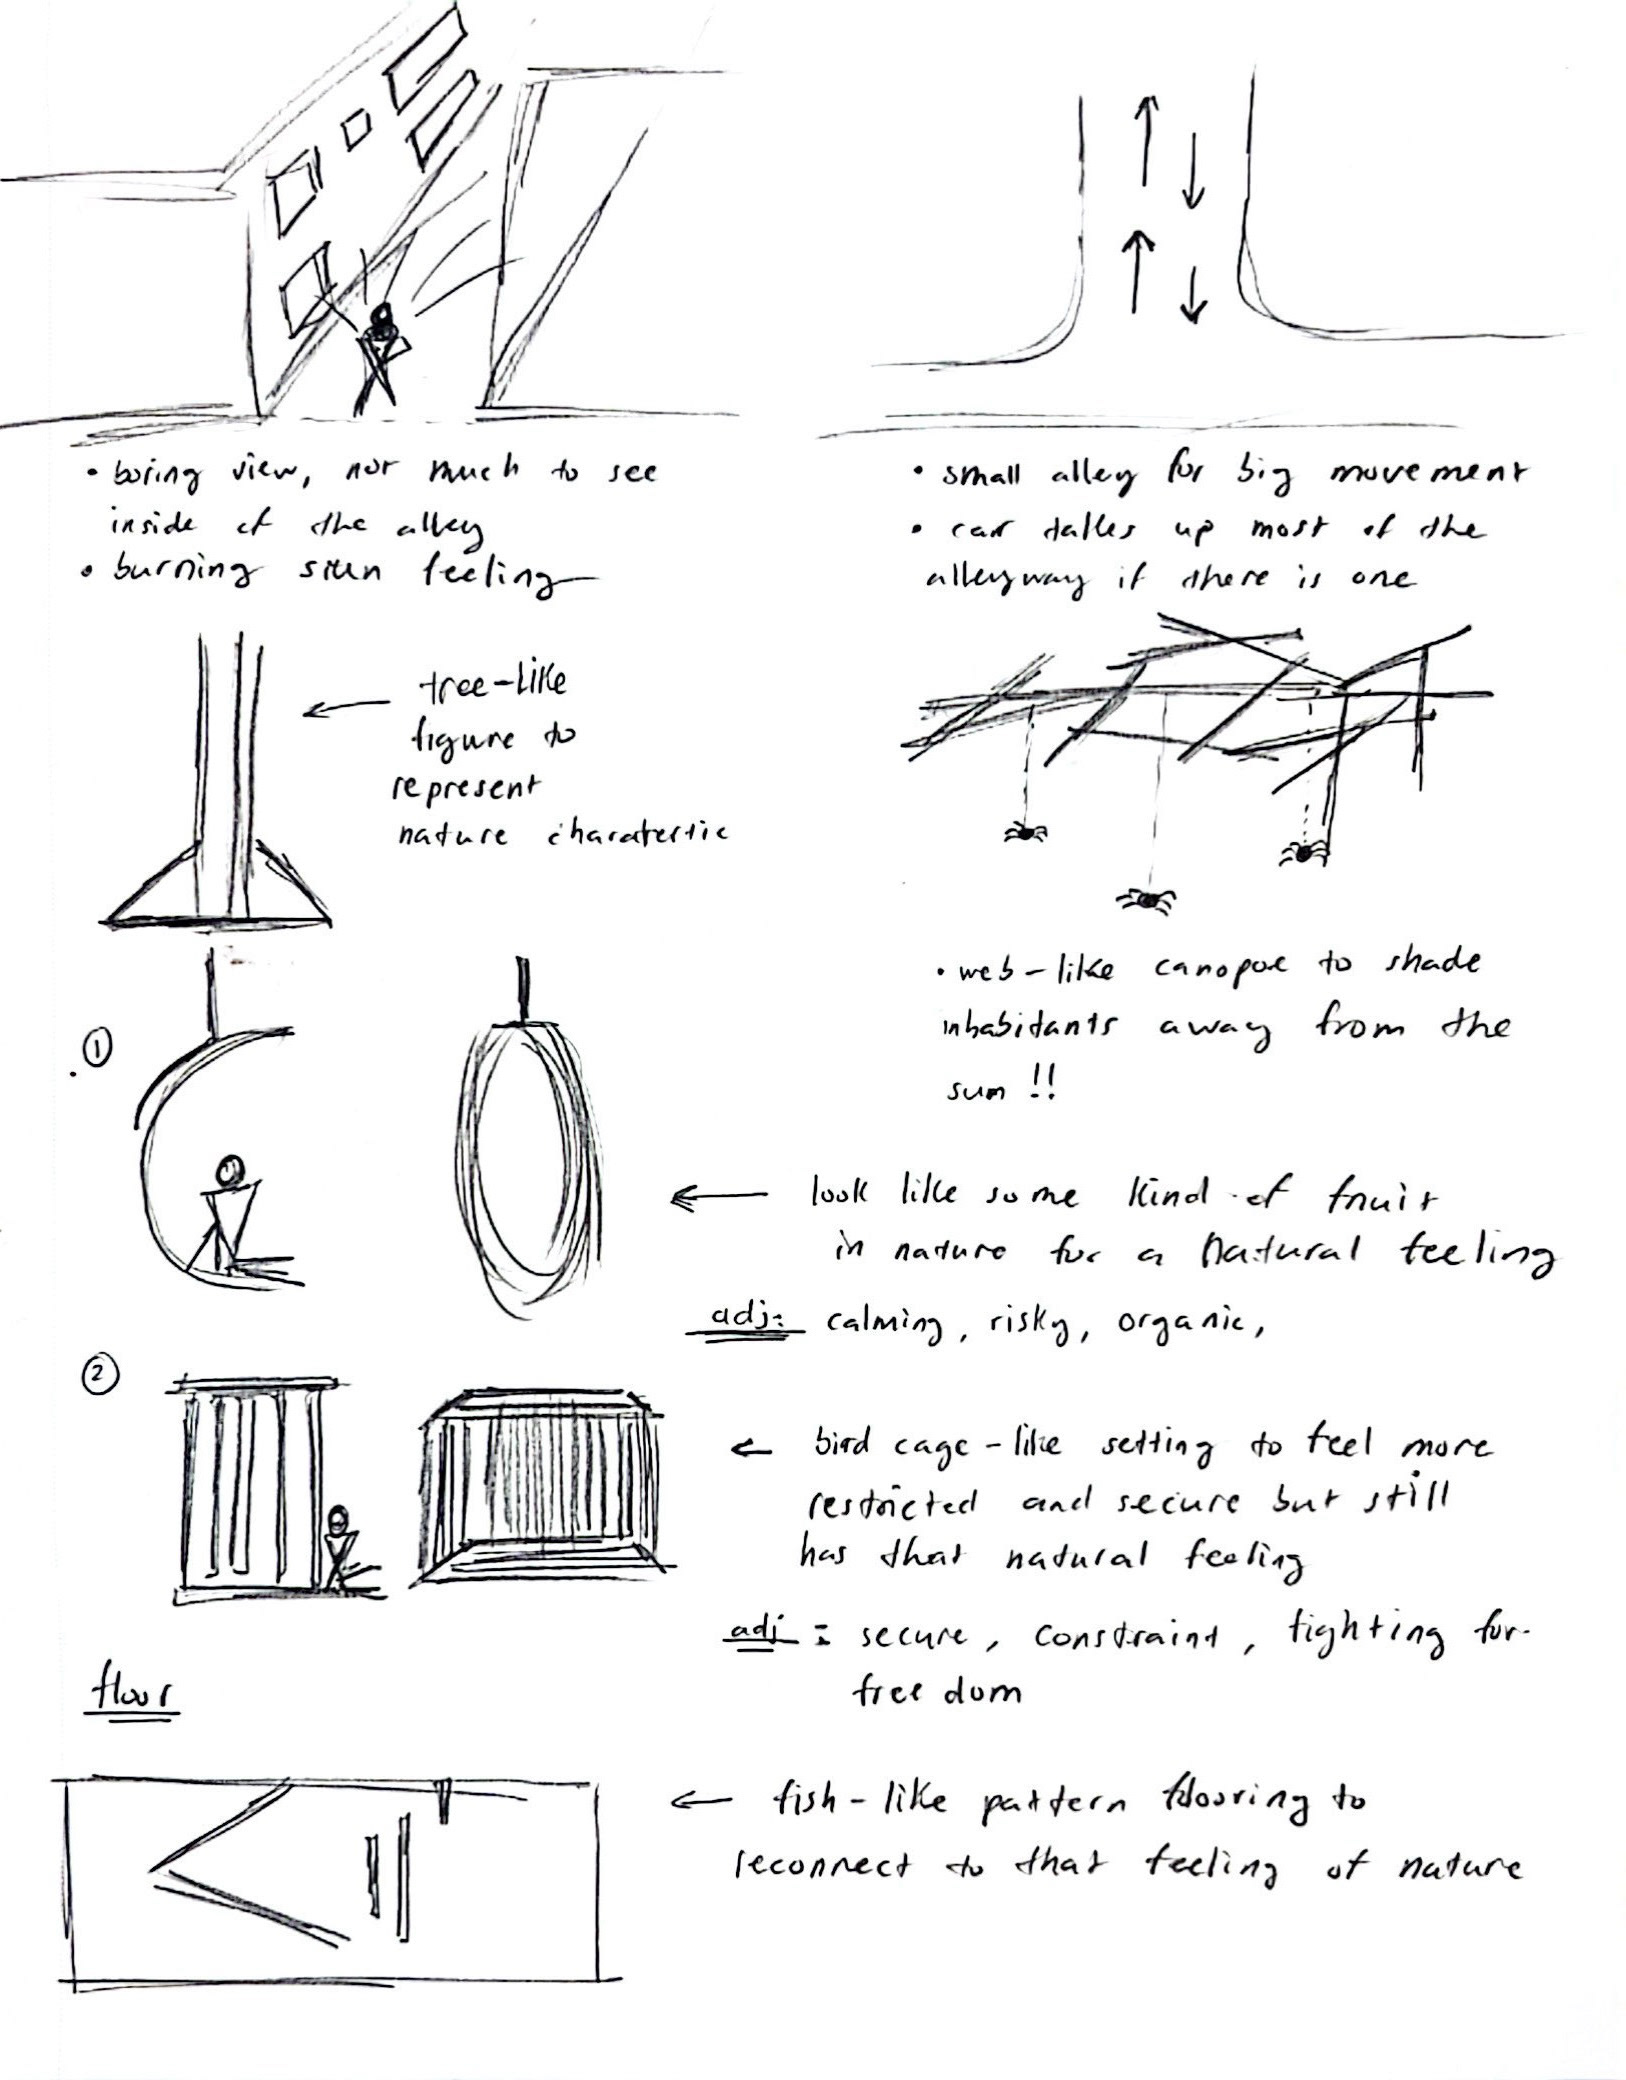 • boring view, not much to see
inside of the alley
• burning sun feeling
• small alley for big movement
• car takes up most of the
alleyway if there is one
tree-like
figure to
represent
nature charatertic
• web-like canopoe to shade
inhabitants away from the
sun !!
1
look like some kind of fruit
in nature for a natural feeling
adj: calming, risky, organic,
2
bird cage-like setting to feel more
restricted and secure but still
has that natural feeling
adj: secure, constraint, fighting for
freedom
floor
fish-like pattern flooring to
reconnect to that feeling of nature